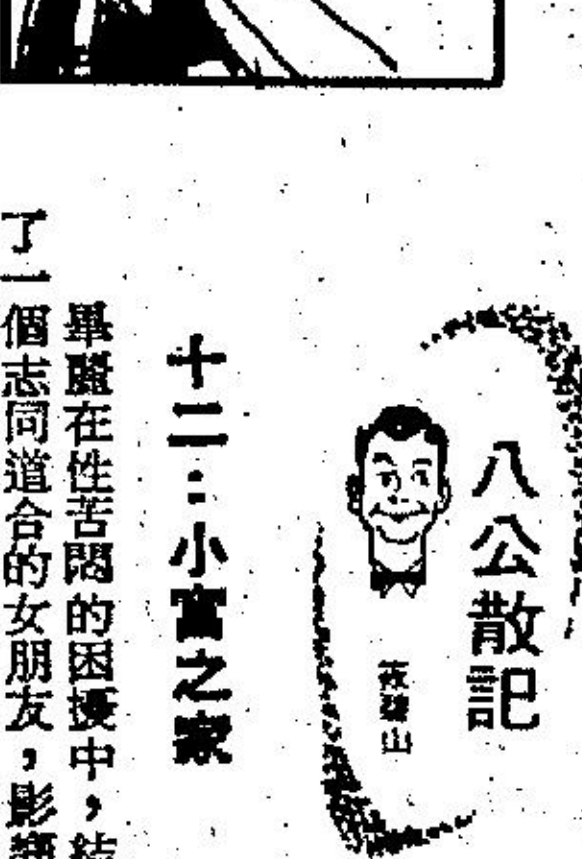 八公散記
山
十二：小富之家
畢麗在性苦悶的困擾中，結
了一個志同道合的女朋友，影響